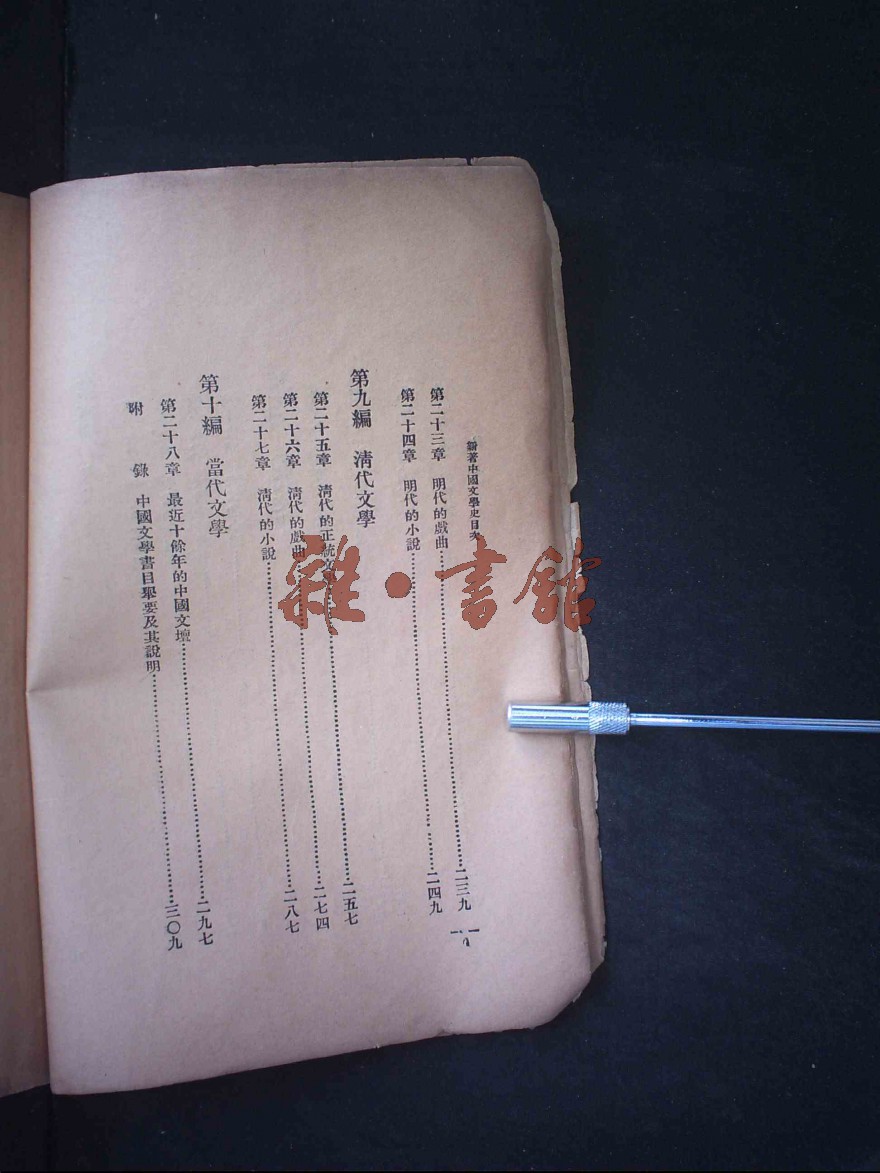 新著中國文學史目次
第二十三章 明代的戲曲……二三九
第二十四章 明代的小說……二四九
第九編 清代文學
第二十五章 清代的正統文學……二五七
第二十六章 清代的戲曲……二七四
第二十七章 清代的小說……二八七
第十編 當代文學
第二十八章 最近十餘年的中國文壇……二九七
附 錄 中國文學書目舉要及其說明……三〇九
雜·書館